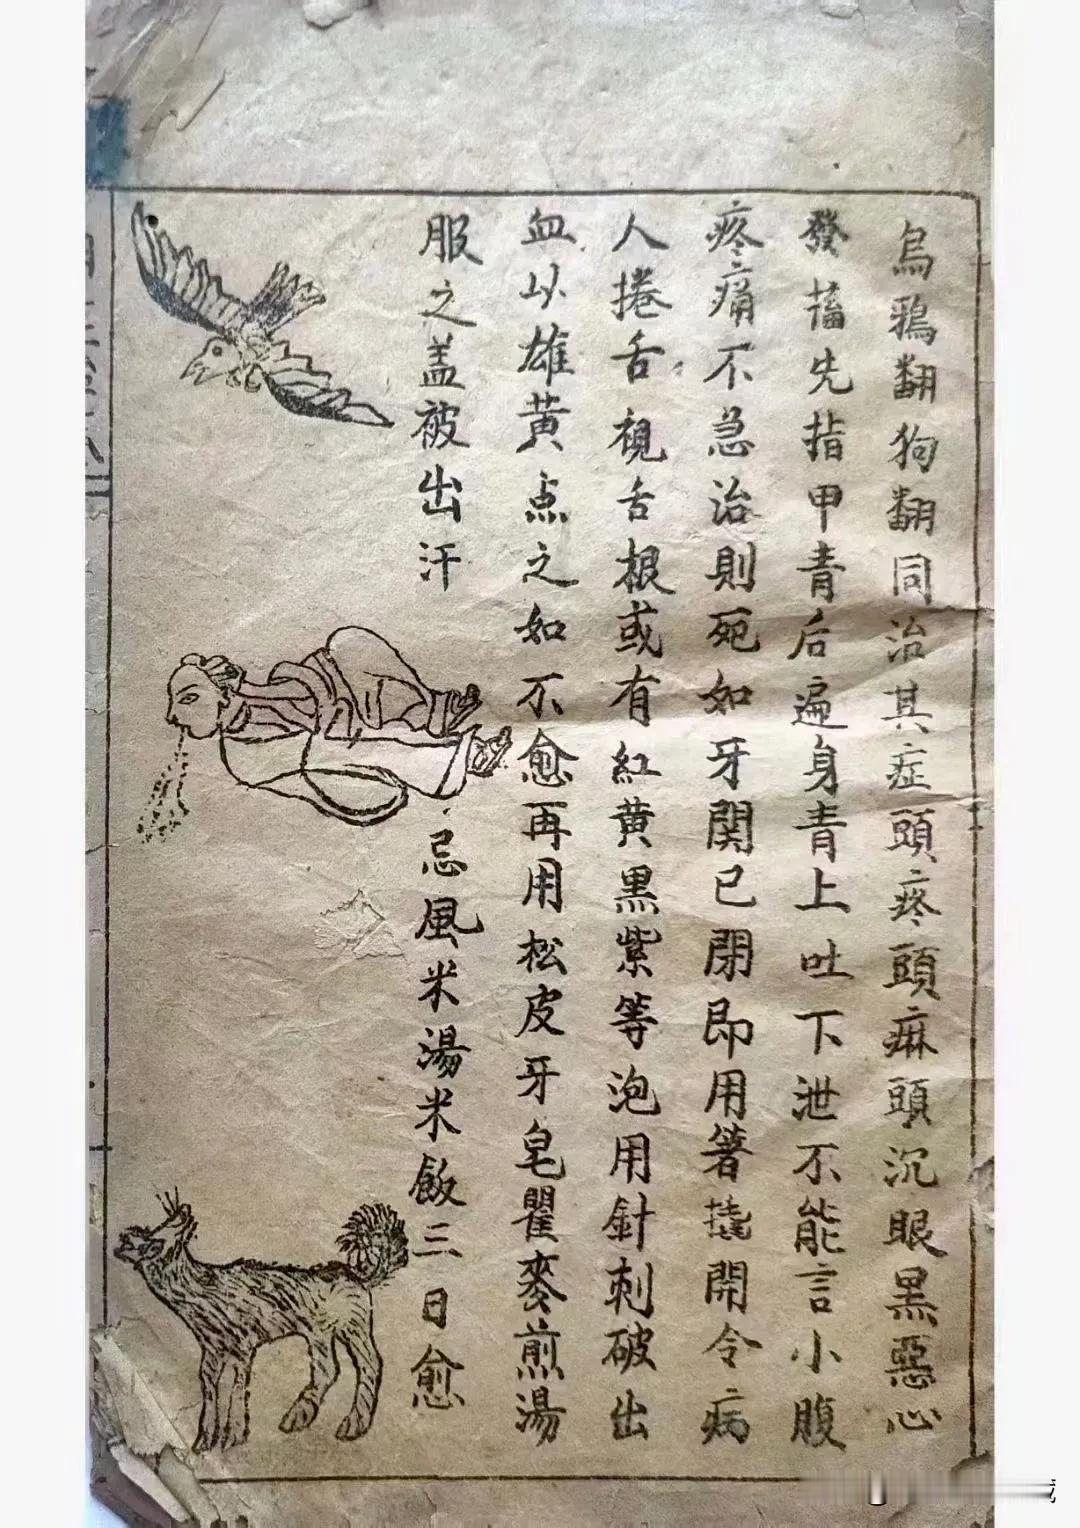 烏鴉翻狗翻同治其症頭疼頭麻頭沉眼黑惡心
發搐先指甲青后遍身青上吐下泄不能言小腹
疼痛不急治則死如牙関已閉即用箸撬開令病
人捲舌視舌根或有紅黄黑紫等泡用針刺破出
血以雄黄点之如不愈再用松皮牙皂瞿麥煎湯
服之盖被出汗
忌風米湯米飯三日愈